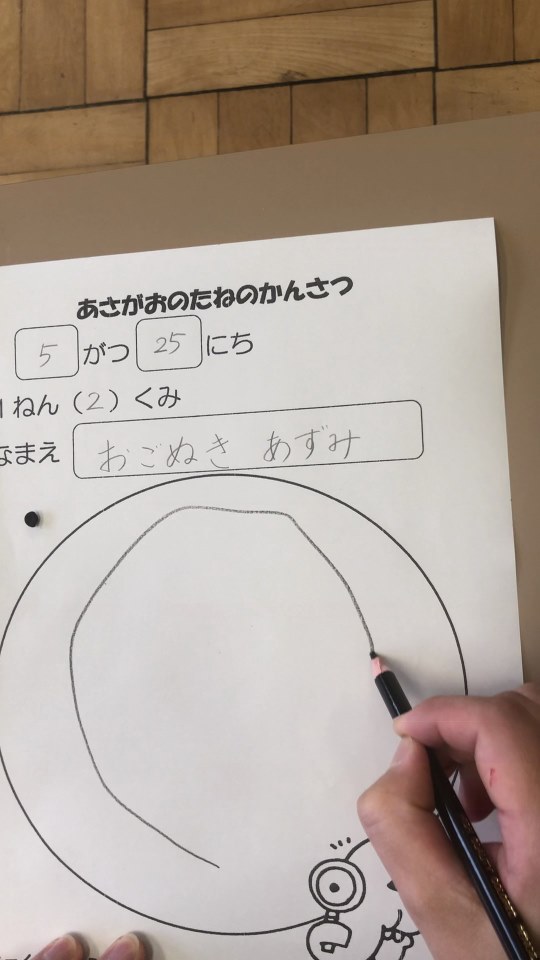 あさがおのたねのかんさつ
5がつ25にち
1ねん(2)くみ
なまえ おごぬき あずみ